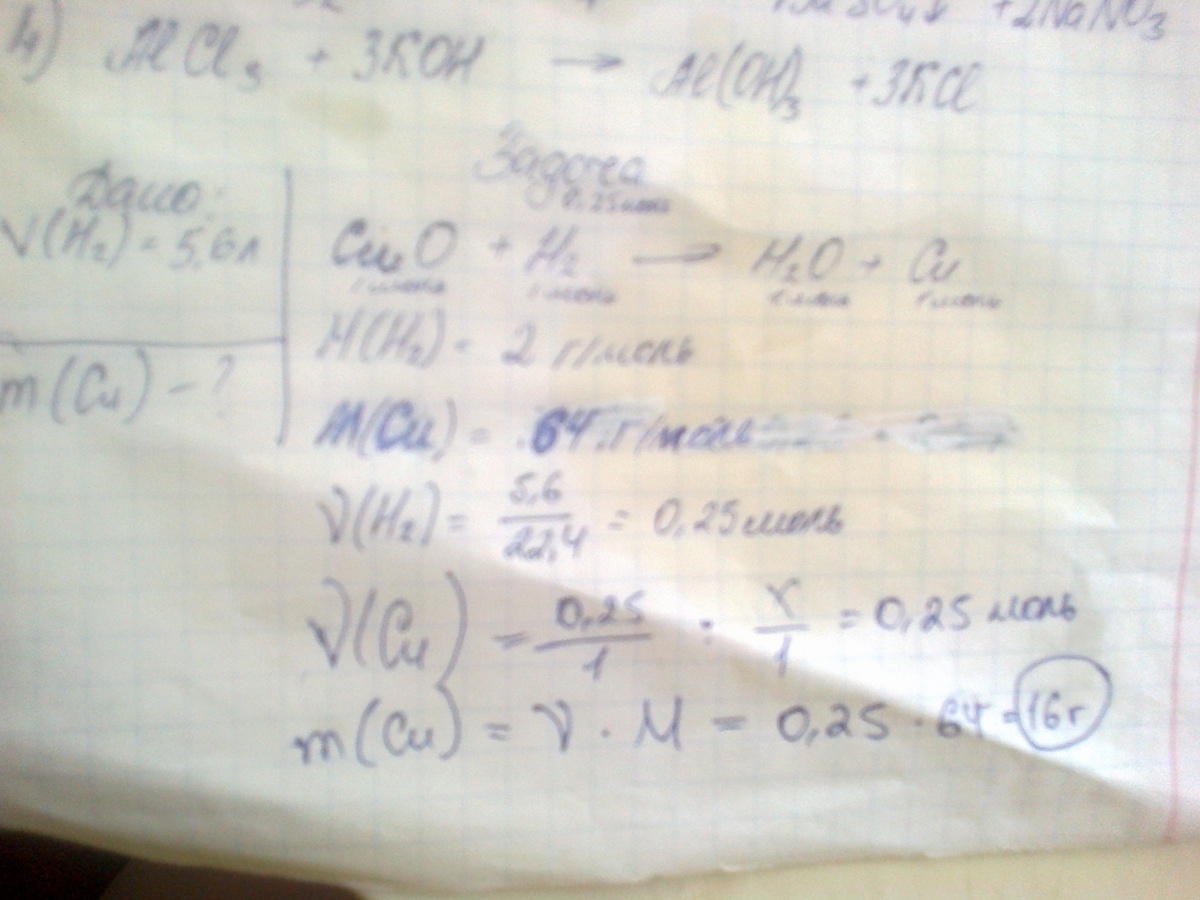 SO₄↓ + 2NaNO₃
4) AlCl₃ + 3KOH → Al(OH)₃ + 3KCl
Задача
Дано:
V(H₂) = 5,6л
m(Cu) - ?
0,25моль
CuO + H₂ → H₂O + Cu
1 моль 1 моль 1 моль 1 моль
M(H₂) = 2 г/моль
M(Cu) = 64 г/моль
ν(H₂) = 5,6/22,4 = 0,25 моль
ν(Cu) = 0,25/1 : x/1 = 0,25 моль
m(Cu) = ν · M = 0,25 · 64 = 16г